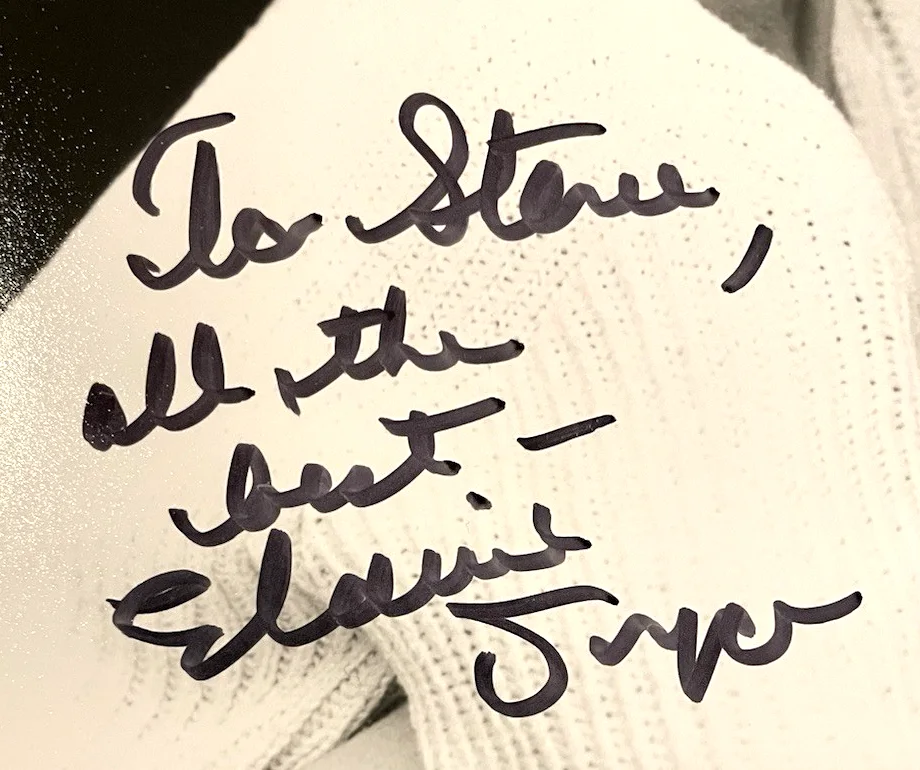 To Steve,
all the
best —
Elaine
Joyce